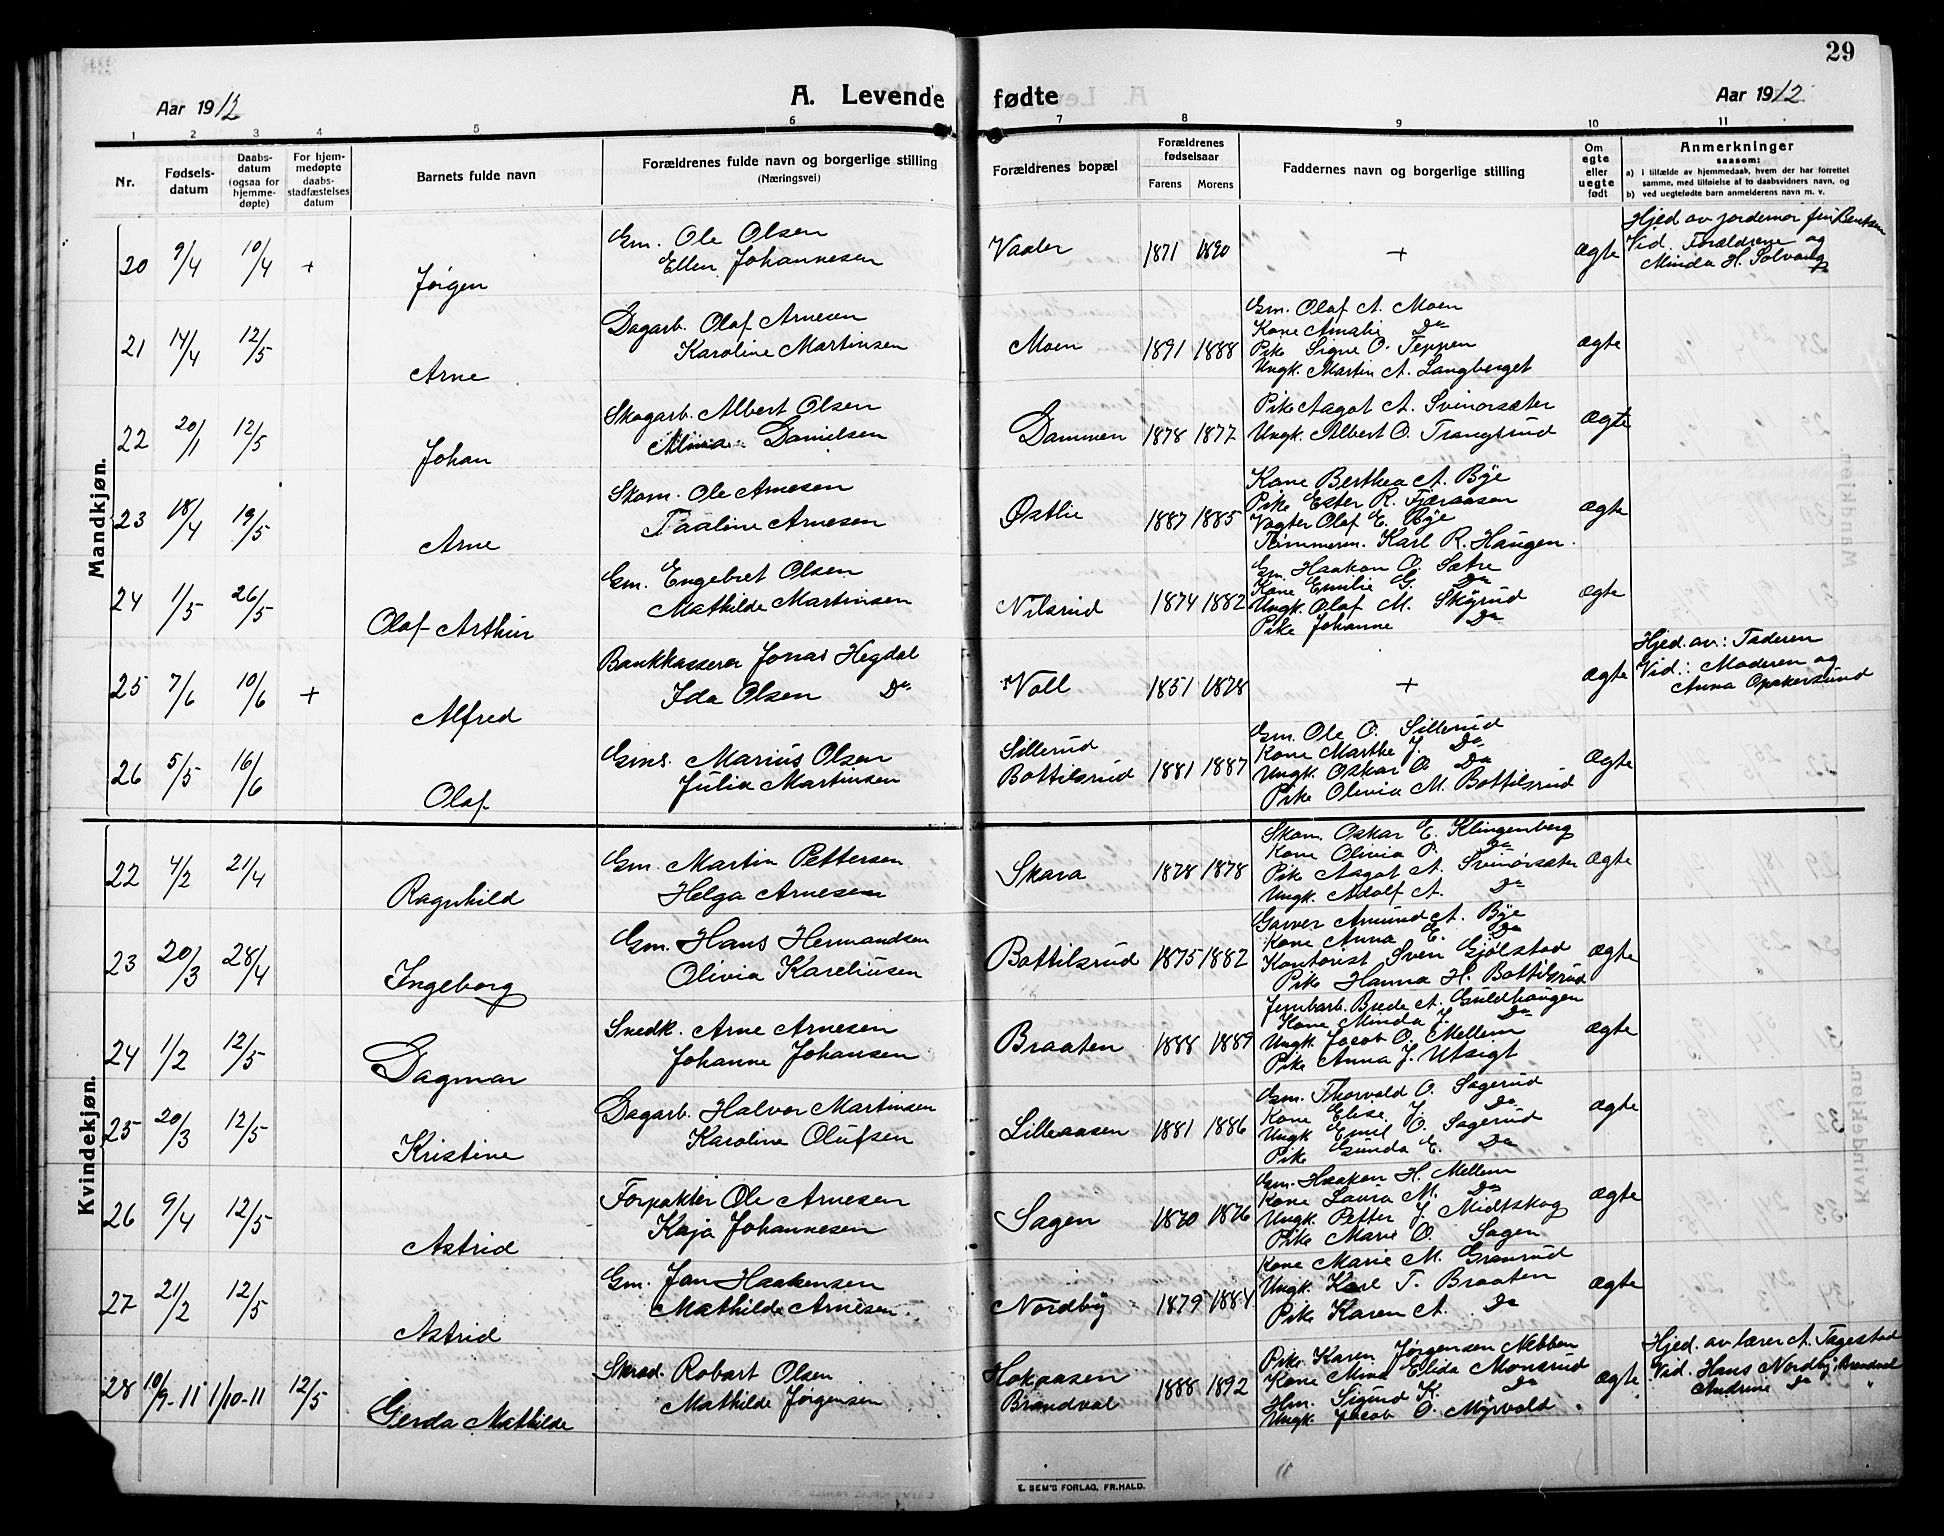 29
Aar 1912
A. Levende fødte
Aar 1912
1 2 3 4 5 6 7 8 9 10 11
Nr.
Fødsels-
datum
Daabs-
datum
(ogsaa for
hjemme-
døpte)
For hjem-
medøpte
daabs-
stadfæstelses
datum
Barnets fulde navn
Forældrenes fulde navn og borgerlige stilling
(Næringsvei)
Forældrenes bopæl
Forældrenes
fødselsaar
Farens Morens
Faddernes navn og borgerlige stilling
Om
egte
eller
uegte
født
Anmerkninger
saasom:
a) i tilfælde av hjemmedaab, hvem der har forrettet
samme, med tilføielse af to daabsvidners navn, og
b) ved uegtefødte barn anmelderens navn m. v.
Mandkjøn.
20 9/4 10/4 + Jørgen
Gm. Ole Olsen
Ellen Johannesen
Vaaler 1871 1890 + ægte
Hjed. av jordemor frk. Bentsen
Vid. Forældrene og
Minda H. Solvang
21 14/4 12/5 Arne
Dagarb. Olaf Arnesen
Karoline Martinsen
Moen 1891 1888
Gm. Olaf A. Moen
Kone Amalie Do
Pike Signe O. Teppen
Ungk. Martin A. Langberget
ægte
22 20/1 12/5 Johan
Skogarb. Albert Olsen
Danielsen
Dammen 1878 1877
Pike Aagot A. Svinorsæter
Ungk. Albert O. Trangsrud
ægte
23 18/4 19/5 Arne
Skom. Ole Arnesen
Paaline Arnesen
Østlie 1887 1885
Kone Berthea A. Bye
Pike Ester R. Fjeraasen
Vogter Olaf E. Bye
Tømmerm. Karl R. Haugen.
ægte
24 1/5 26/5 Olaf Arthur
Gm. Engebret Olsen
Mathilde Martinsen
Nilsrud 1874 1882
Gm. Haakon O. Sætre
Kone Emilie G. Do
Ungk. Olaf M. Skyrud
Pike Johanne Do
ægte
25 7/6 10/6 + Alfred
Bankkasserer Jonas Hegdal
Ida Olsen Do
Voll 1851 1878 + ægte
Hjed. av: Faderen
Vid.: Moderen og
Anna Opakersund
26 5/5 16/6 Olaf
Gms. Marius Olsen
Julia Martinsen
Sillerud
Bottilsrud 1881 1887
Gm. Ole O. Sillerud
Kone Marthe J. Do
Ungk. Oskar O. Do
Pike Olivia M. Bottilsrud
ægte
Kvindekjøn.
22 4/2 21/4 Ragnhild
Gm. Martin Pettersen
Helga Arnesen
Skara 1878 1878
Skom. Oskar E. Klingenberg
Kone Olivia P. Do
Pike Aagot A. Svinorsæter
Ungk. Adolf A. Do
ægte
23 20/3 28/4 Ingeborg
Gm. Hans Hermandsen
Olivia Kareliusen
Bottilsrud 1875 1882
Garver Amund A. Bye
Kone Anna E. Do
Kontorist Sven Gjølstad
Pike Hanna H. Bottilsrud
ægte
24 1/2 12/5 Dagmar
Snedk. Arne Arnesen
Johanne Johansen
Braaten 1888 1889
Jernbarb. Brede A. Guldhaugen
Kone Minda J. Do
Ungk. Jacob O. Mellem
Pike Anna J. Utsigt
ægte
25 20/3 12/5 Kristine
Dagarb. Halvor Martinsen
Karoline Olufsen
Lilleaasen 1881 1886
Gm. Thorvald O. Sagerud
Kone Elise J. Do
Ungk. Emil O. Sagerud
Pike Gunda E. Do
ægte
26 9/4 12/5 Astrid
Forpakter Ole Arnesen
Kaja Johannesen
Sagen 1870 1876
Gm. Haakon H. Mellem
Kone Laura M. Do
Ungk. Petter J. Midtskog
Pike Marie O. Sagen
ægte
27 21/2 12/5 Astrid
Gm. Jan Haakensen
Mathilde Arnesen.
Nordby 1879 1884
Kone Marie M. Granrud
Ungk. Karl T. Braaten
Pike Karen A. Do
ægte
28 10/9-11 1/10-11 12/5 Gerda Mathilde
Skrad. Robart Olsen
Mathilde Jørgensen
Hokaasen
Brandval 1888 1892
Pike Karen Jørgensen Nebben
Kone Mina Elida Monsrud
Hm. Sigurd K. Do
Ungk. Jacob O. Myrvold.
ægte
Hjed. av lærer A. Tagestad
Vid. Hans Nordby, Brandval
Andrine Do "
E. SEM'S FORLAG, FR.HALD.